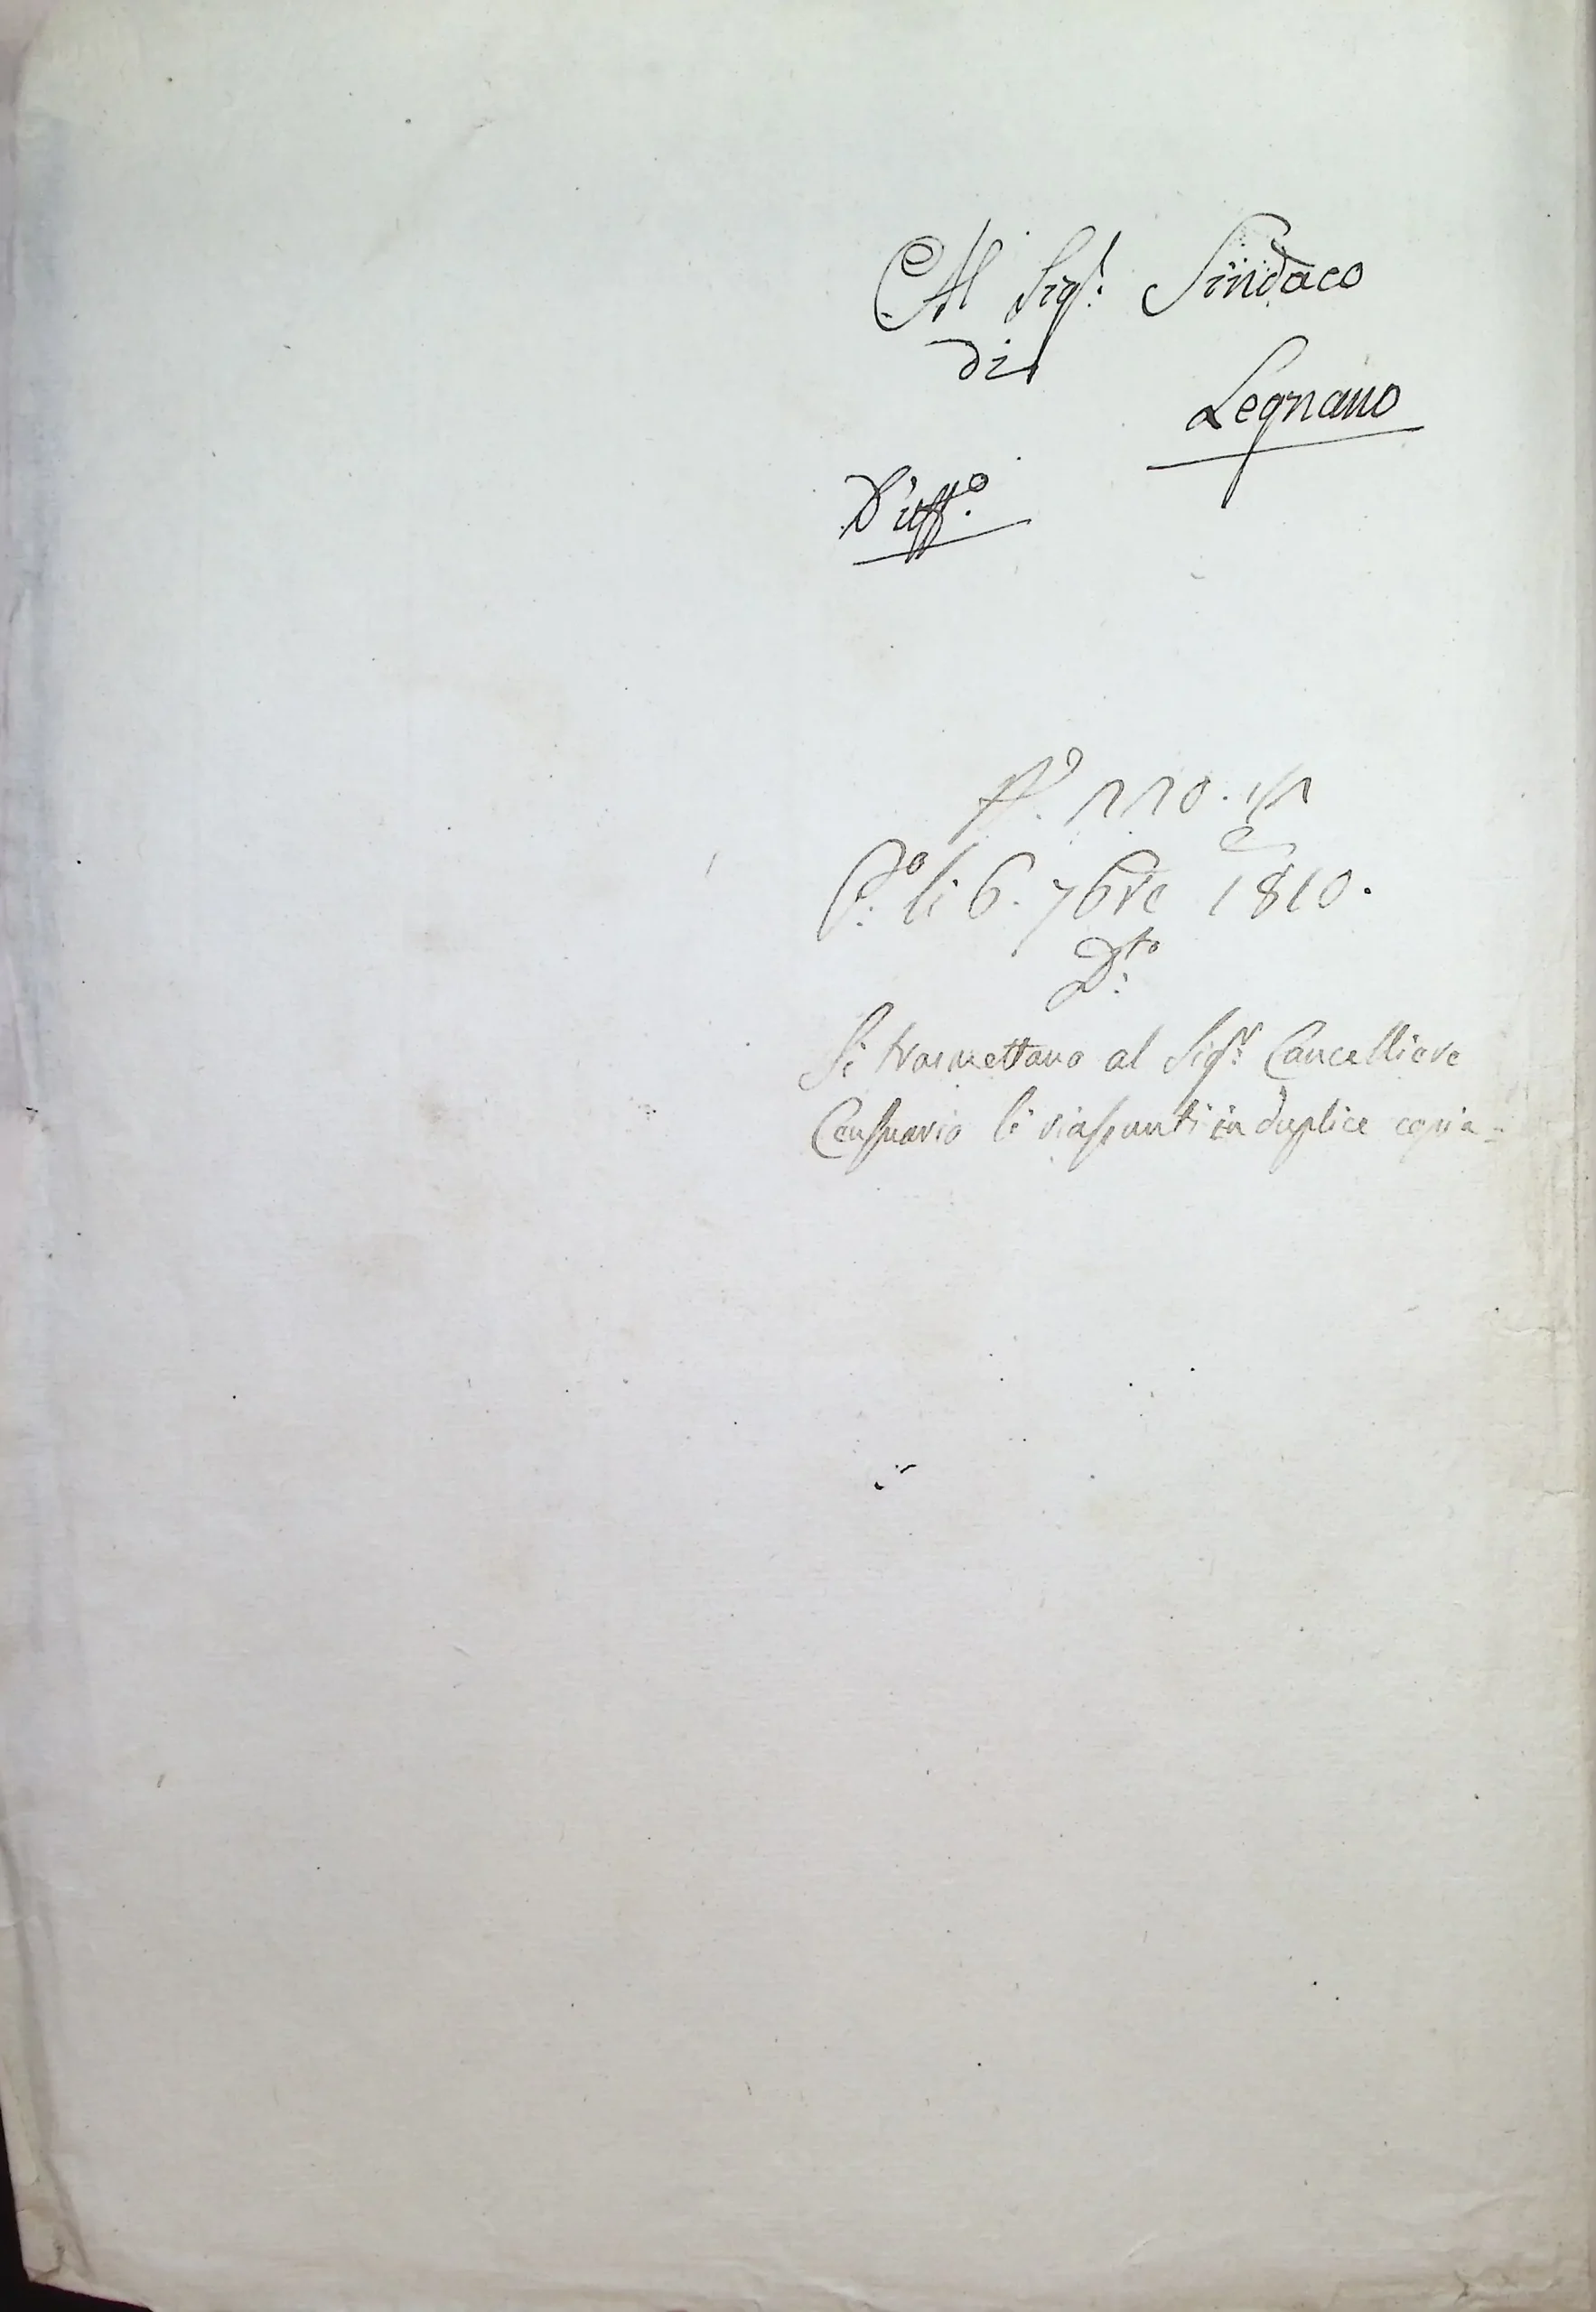 Al Sig.r Sindaco
di
Legnano
D'uff.o
N.o 220.
P.o li 6. 7bre 1810.
D.to
Si trasmettano al Sig.r Cancelliere
Censuario li riassunti in duplice copia =